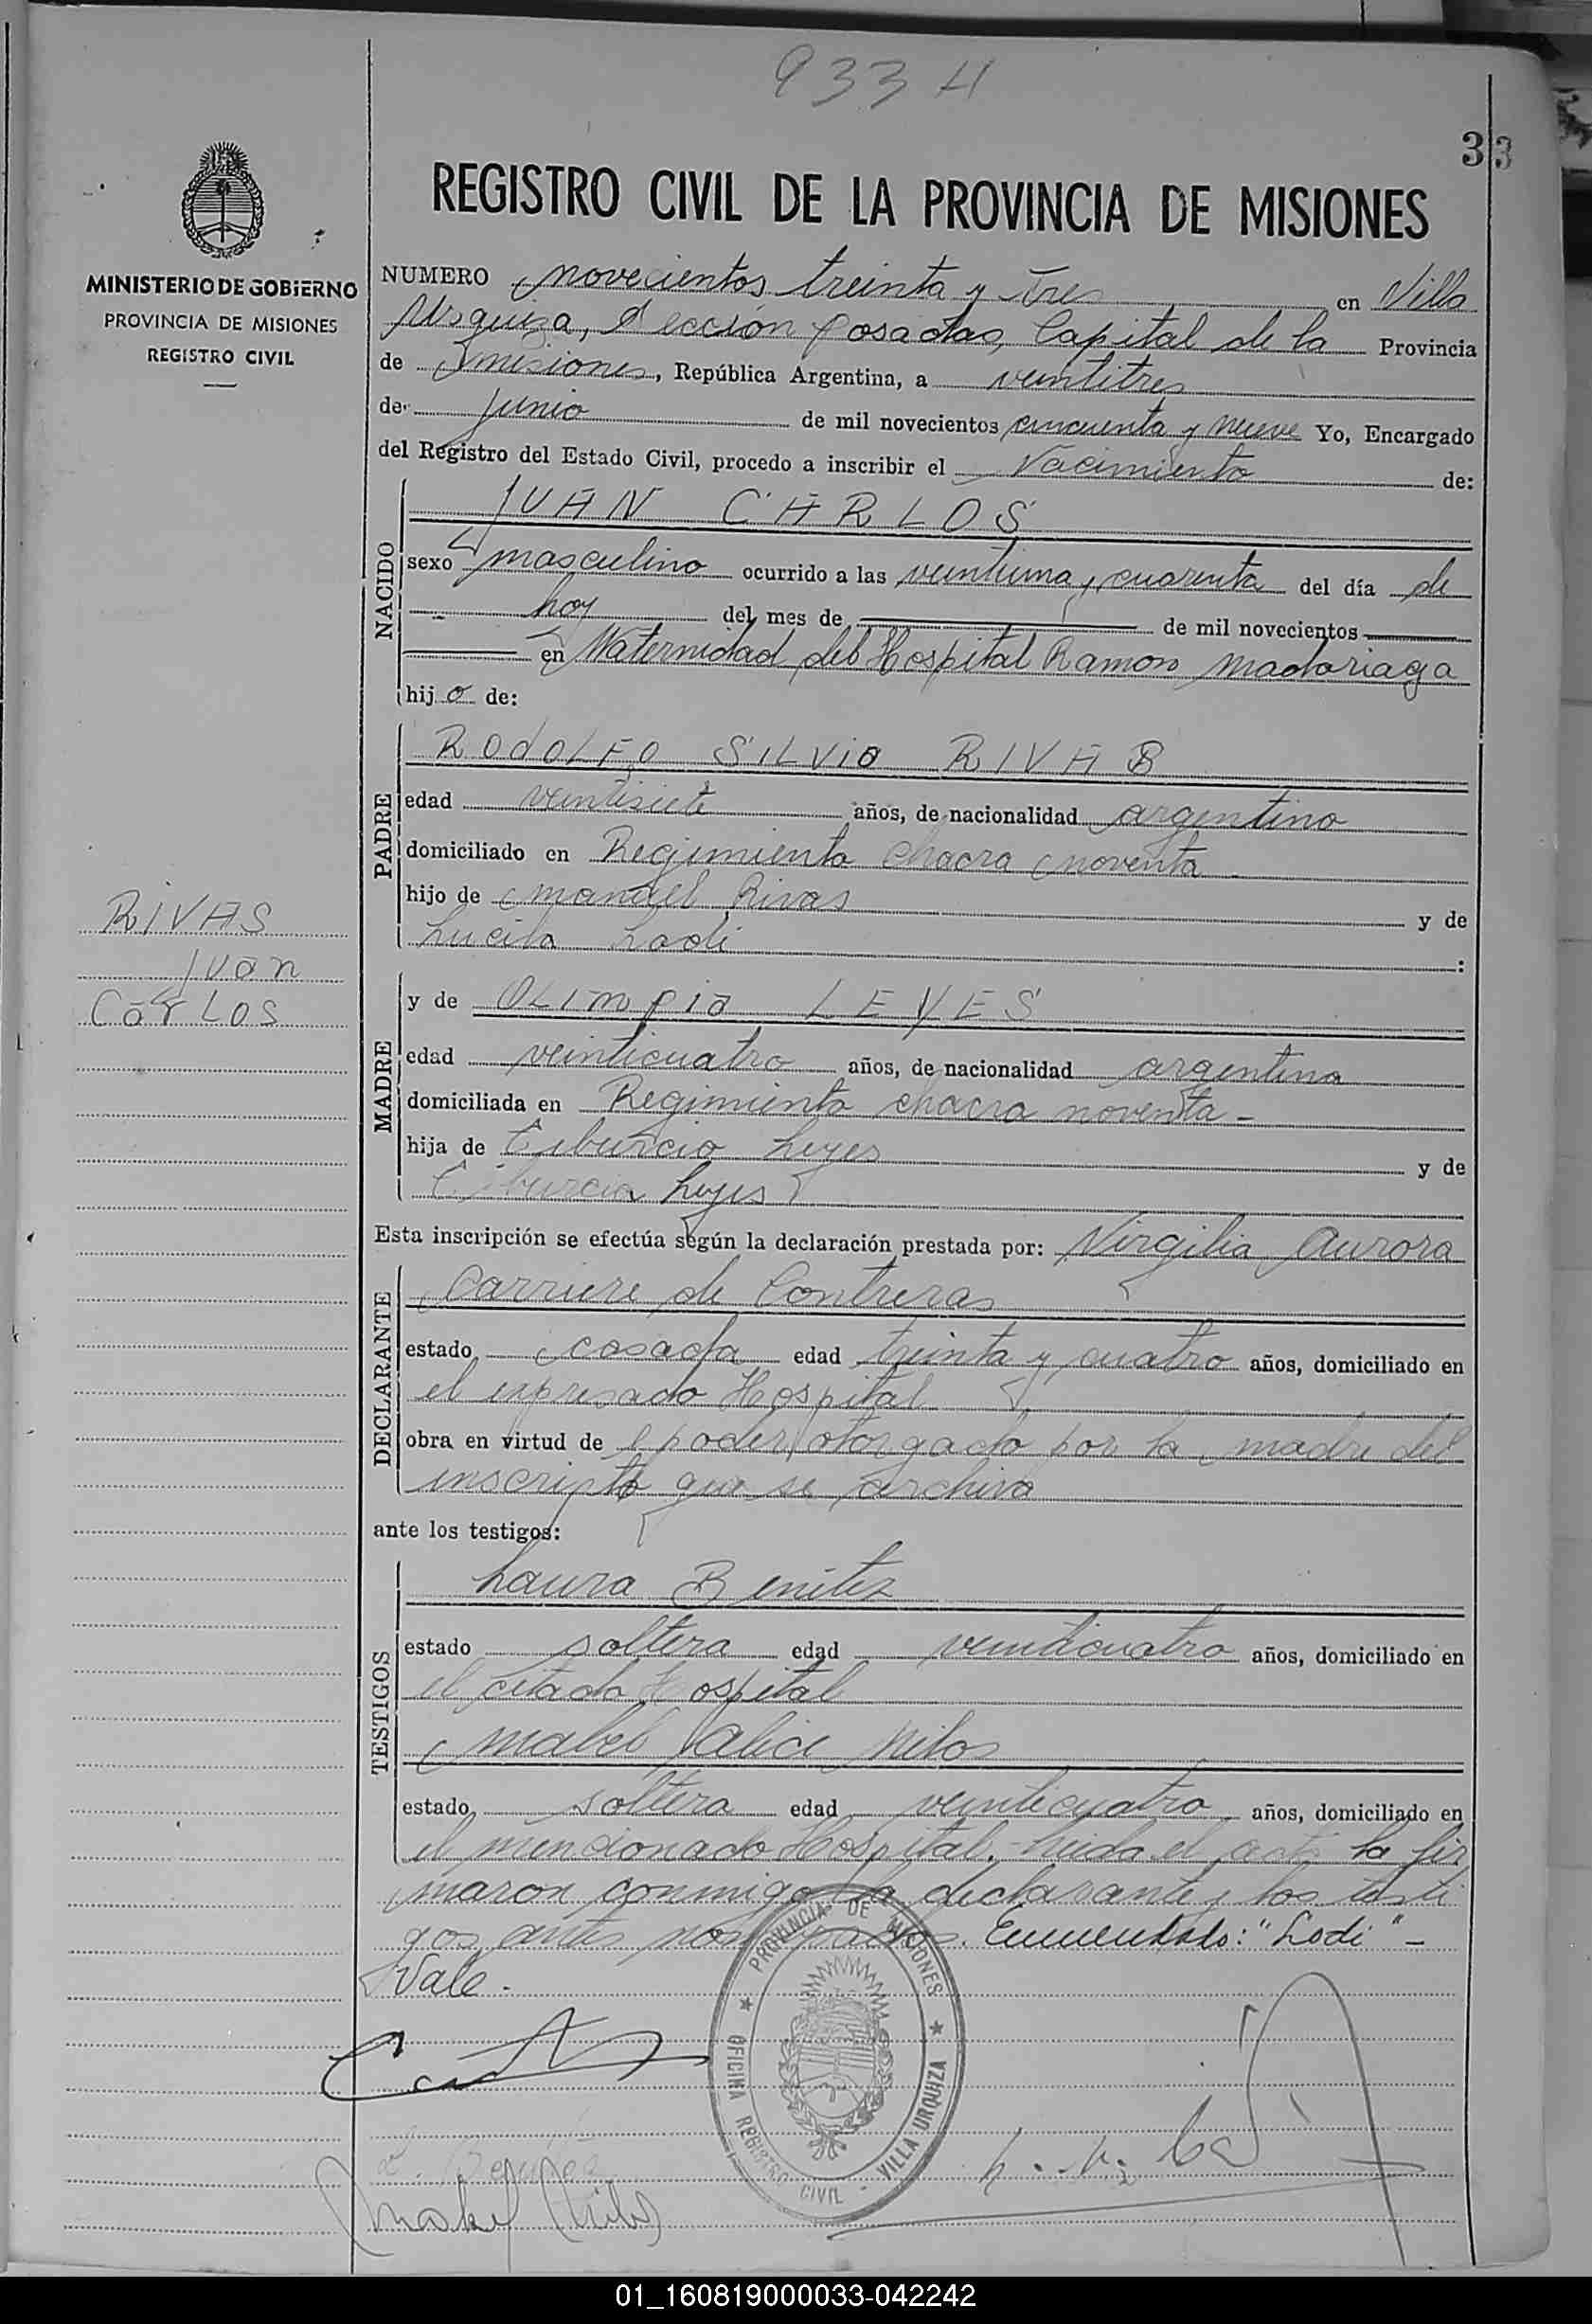 933 H
33
REGISTRO CIVIL DE LA PROVINCIA DE MISIONES
MINISTERIO DE GOBIERNO
PROVINCIA DE MISIONES
REGISTRO CIVIL
NUMERO novecientos treinta y tres en Villa
Urquiza, Sección Posadas, Capital de la Provincia
de Misiones, República Argentina, a veintitres
de junio de mil novecientos cincuenta y nueve Yo, Encargado
del Registro del Estado Civil, procedo a inscribir el Nacimiento de:
NACIDO
JUAN CARLOS
sexo masculino ocurrido a las veintiuna y cuarenta del día de
hoy del mes de de mil novecientos
en Maternidad del Hospital Ramon Madariaga
hijo de:
PADRE
RODOLFO SILVIO RIVAS
edad veintisiete años, de nacionalidad argentino
domiciliado en Regimiento chacra noventa
hijo de Manuel Rivas y de
Lucila Lodi :
RIVAS
Juan
CARLOS
MADRE
y de OLIMPIA LEYES
edad veinticuatro años, de nacionalidad argentina
domiciliada en Regimiento chacra noventa -
hija de Tiburcio Leyes y de
Tiburcia Leyes
Esta inscripción se efectúa según la declaración prestada por: Virgilia Aurora
DECLARANTE
Carriere de Contreras
estado casada edad treinta y cuatro años, domiciliado en
el expresado Hospital
obra en virtud de poder otorgado por la madre del
inscripto que se archiva
ante los testigos:
TESTIGOS
Laura Benitez
estado soltera edad veinticuatro años, domiciliado en
el citado Hospital
Mabel Alice Milos
estado soltera edad veinticuatro años, domiciliado en
el mencionado Hospital. Leida el acta la fir
maron conmigo la declarante y los testi
gos antes nombrados. Enmendado: "Lodi" -
Vale.
PROVINCIA DE MISIONES
OFICINA REGISTRO CIVIL - VILLA URQUIZA
L. Benitez
Mabel Milos
01_160819000033-042242